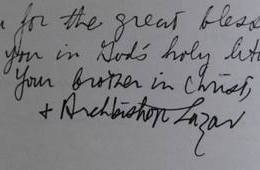 for the great bless
you in God's holy litu
Your brother in Christ,
+ Archbishop Lazar